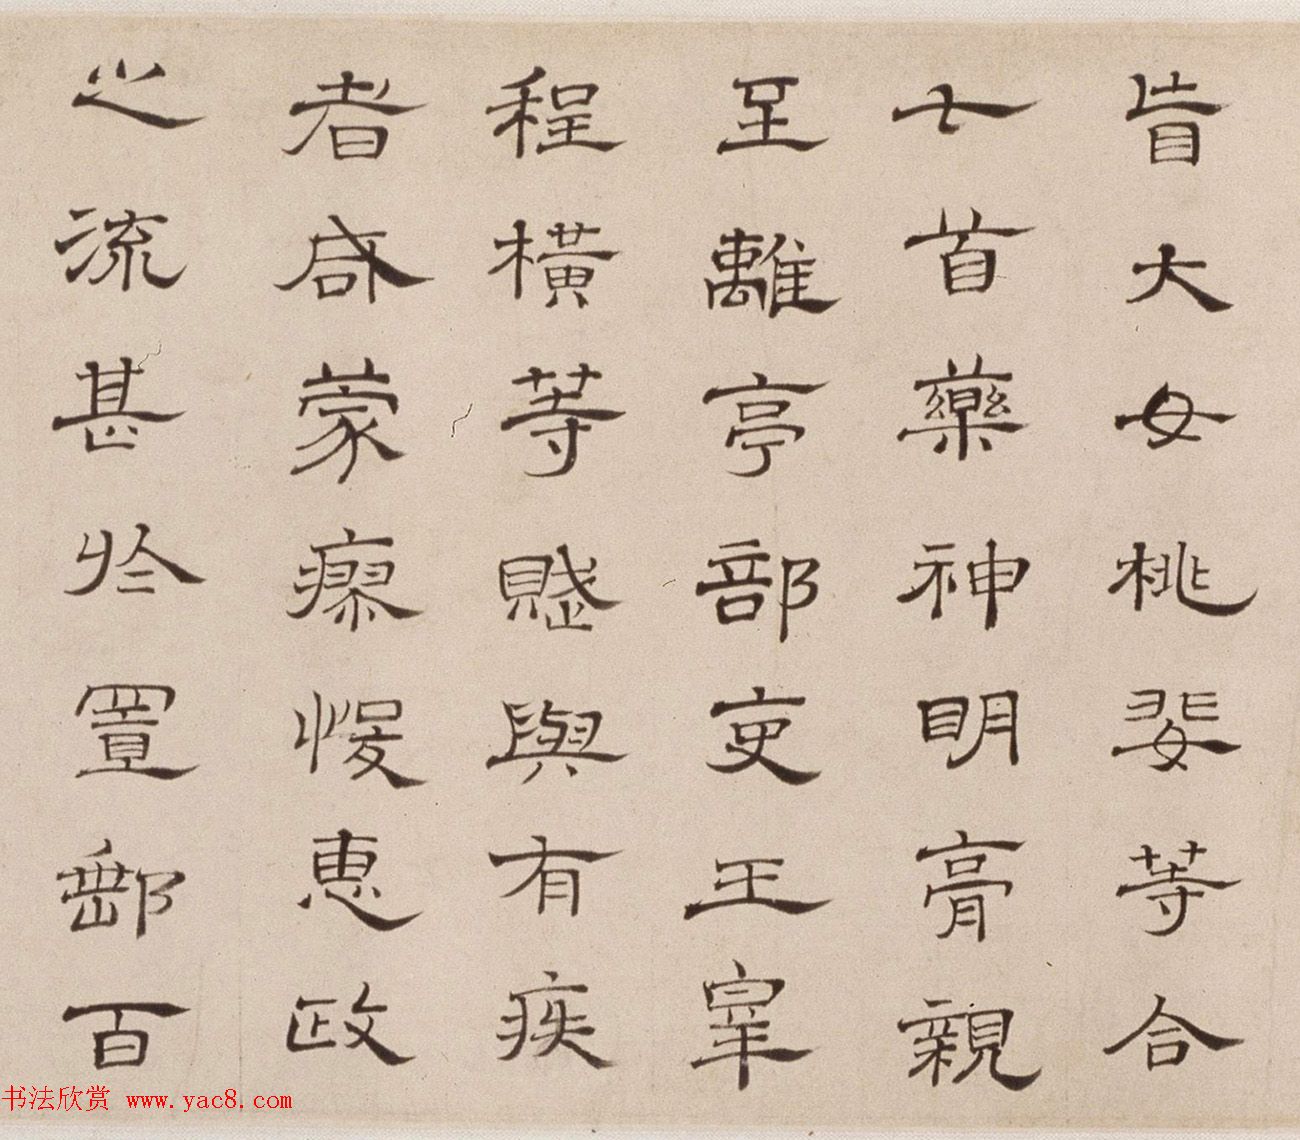 盲大女桃婓等合
七首藥神明膏親
至離亭部吏王皐
程橫等賦與有疾
者咸蒙瘳悛惠政
之流甚於置郵百
书法欣赏 www.yac8.com